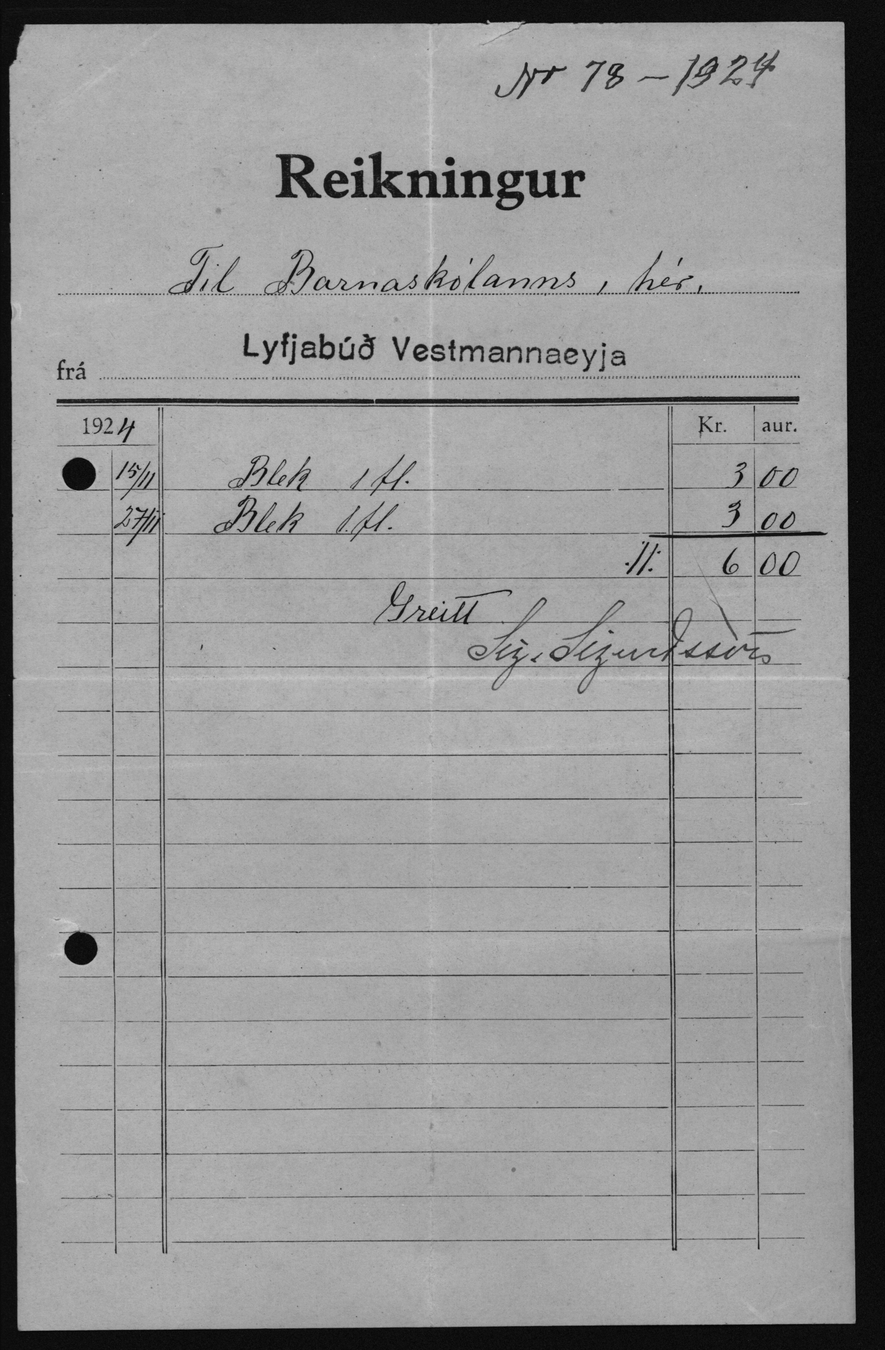 Nr 78 - 1924
Reikningur
Til Barnaskólanns, hér.
frá Lyfjabúð Vestmannaeyja
1924 Kr. aur.
15/11 Blek 1 fl. 3 00
27/11 Blek 1 fl. 3 00
·//· 6 00
Greitt
Sig. Sigurðsson